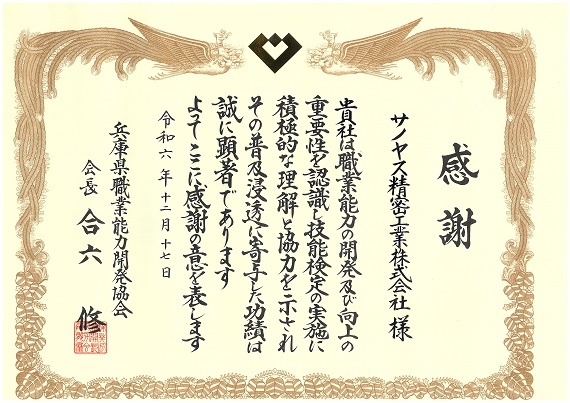 感謝
サノヤス精密工業株式会社 様
貴社は職業能力の開発及び向上の
重要性を認識し技能検定の実施に
積極的な理解と協力を示され
その普及浸透に寄与した功績は
誠に顕著であります
よってここに感謝の意を表します
令和六年十二月十七日
兵庫県職業能力開発協会
会長 合六 修